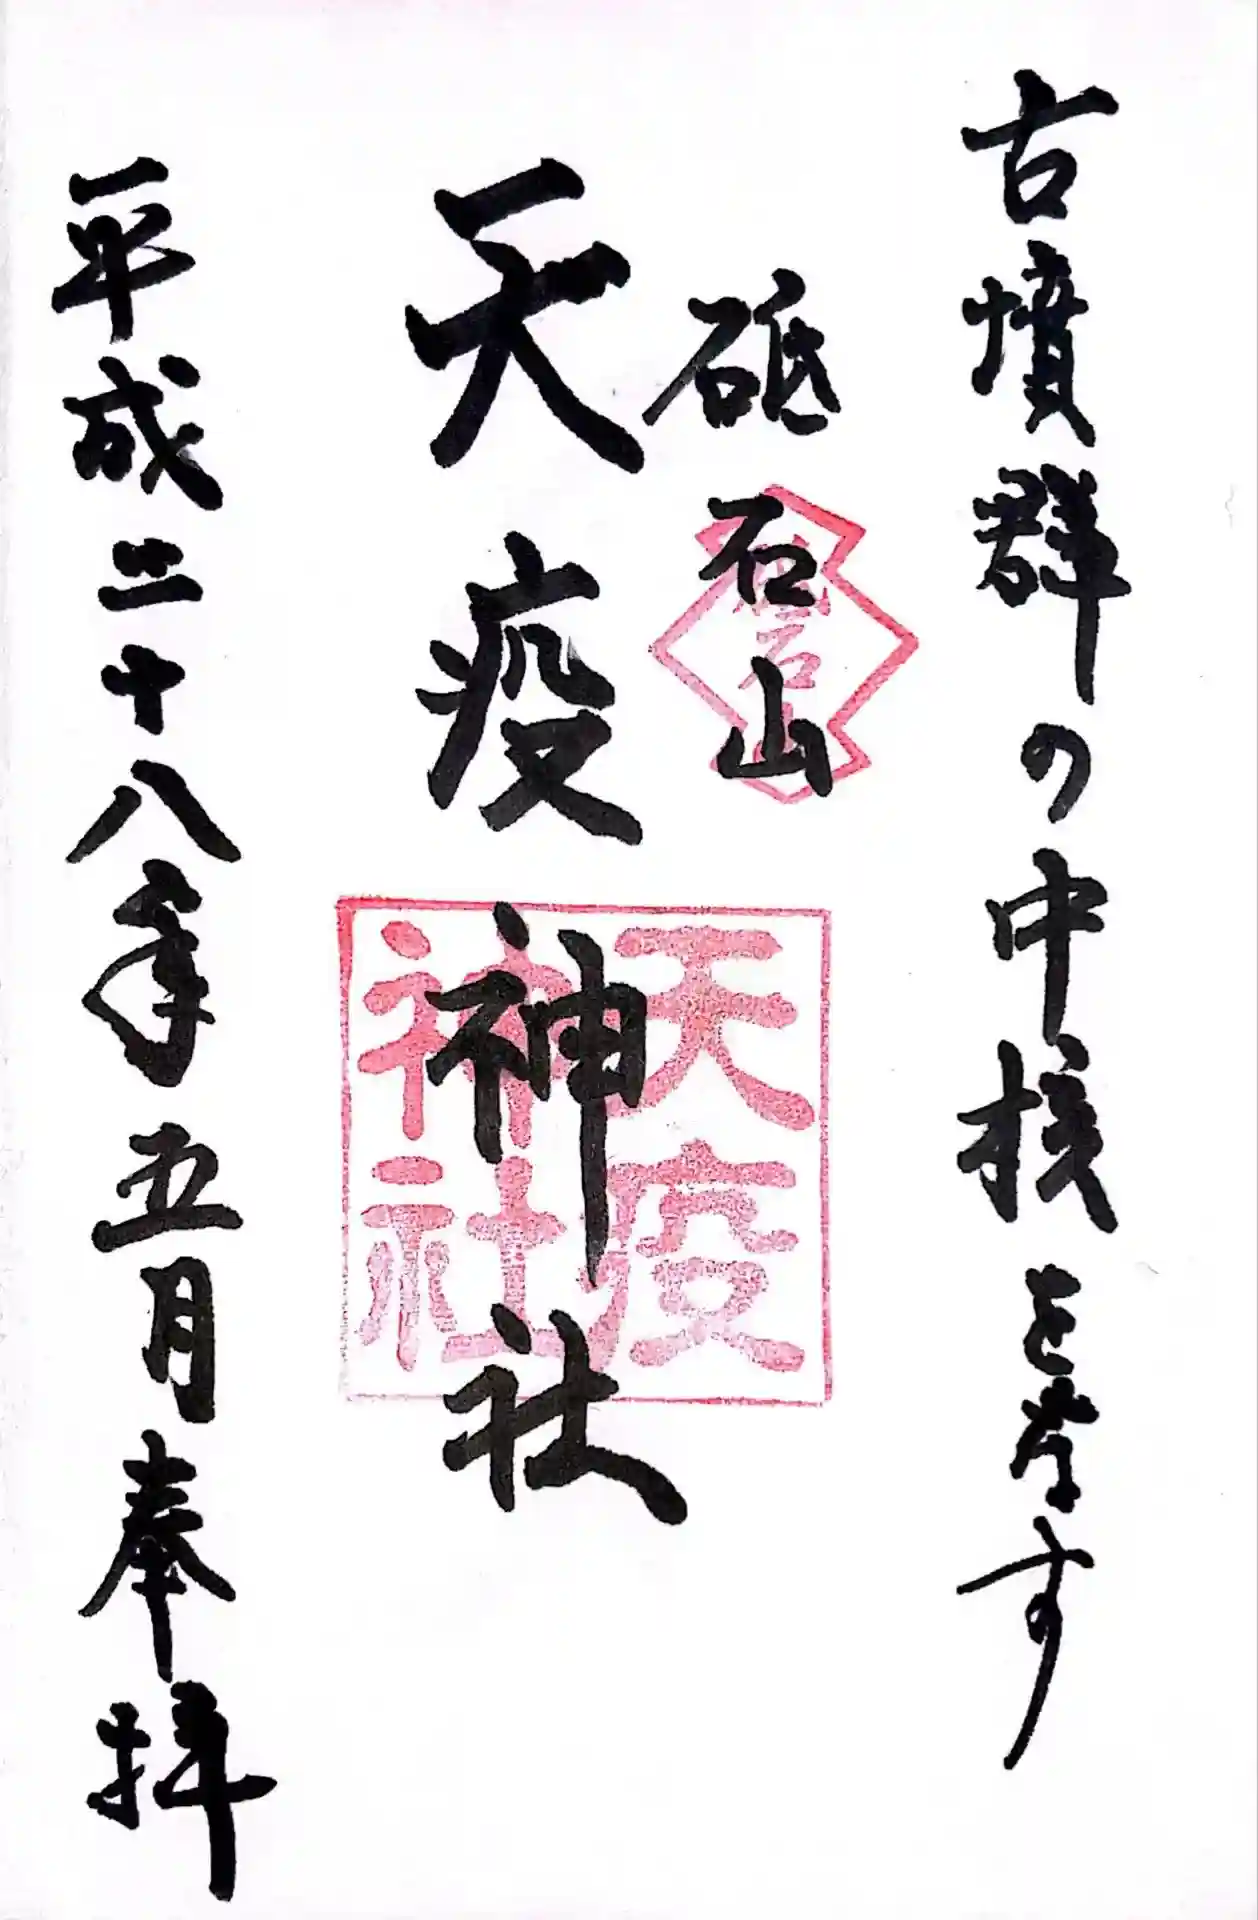 古墳群の中核を為す
砥石山
砥石山
天疫神社
天疫
神社
平成二十八年五月奉拝